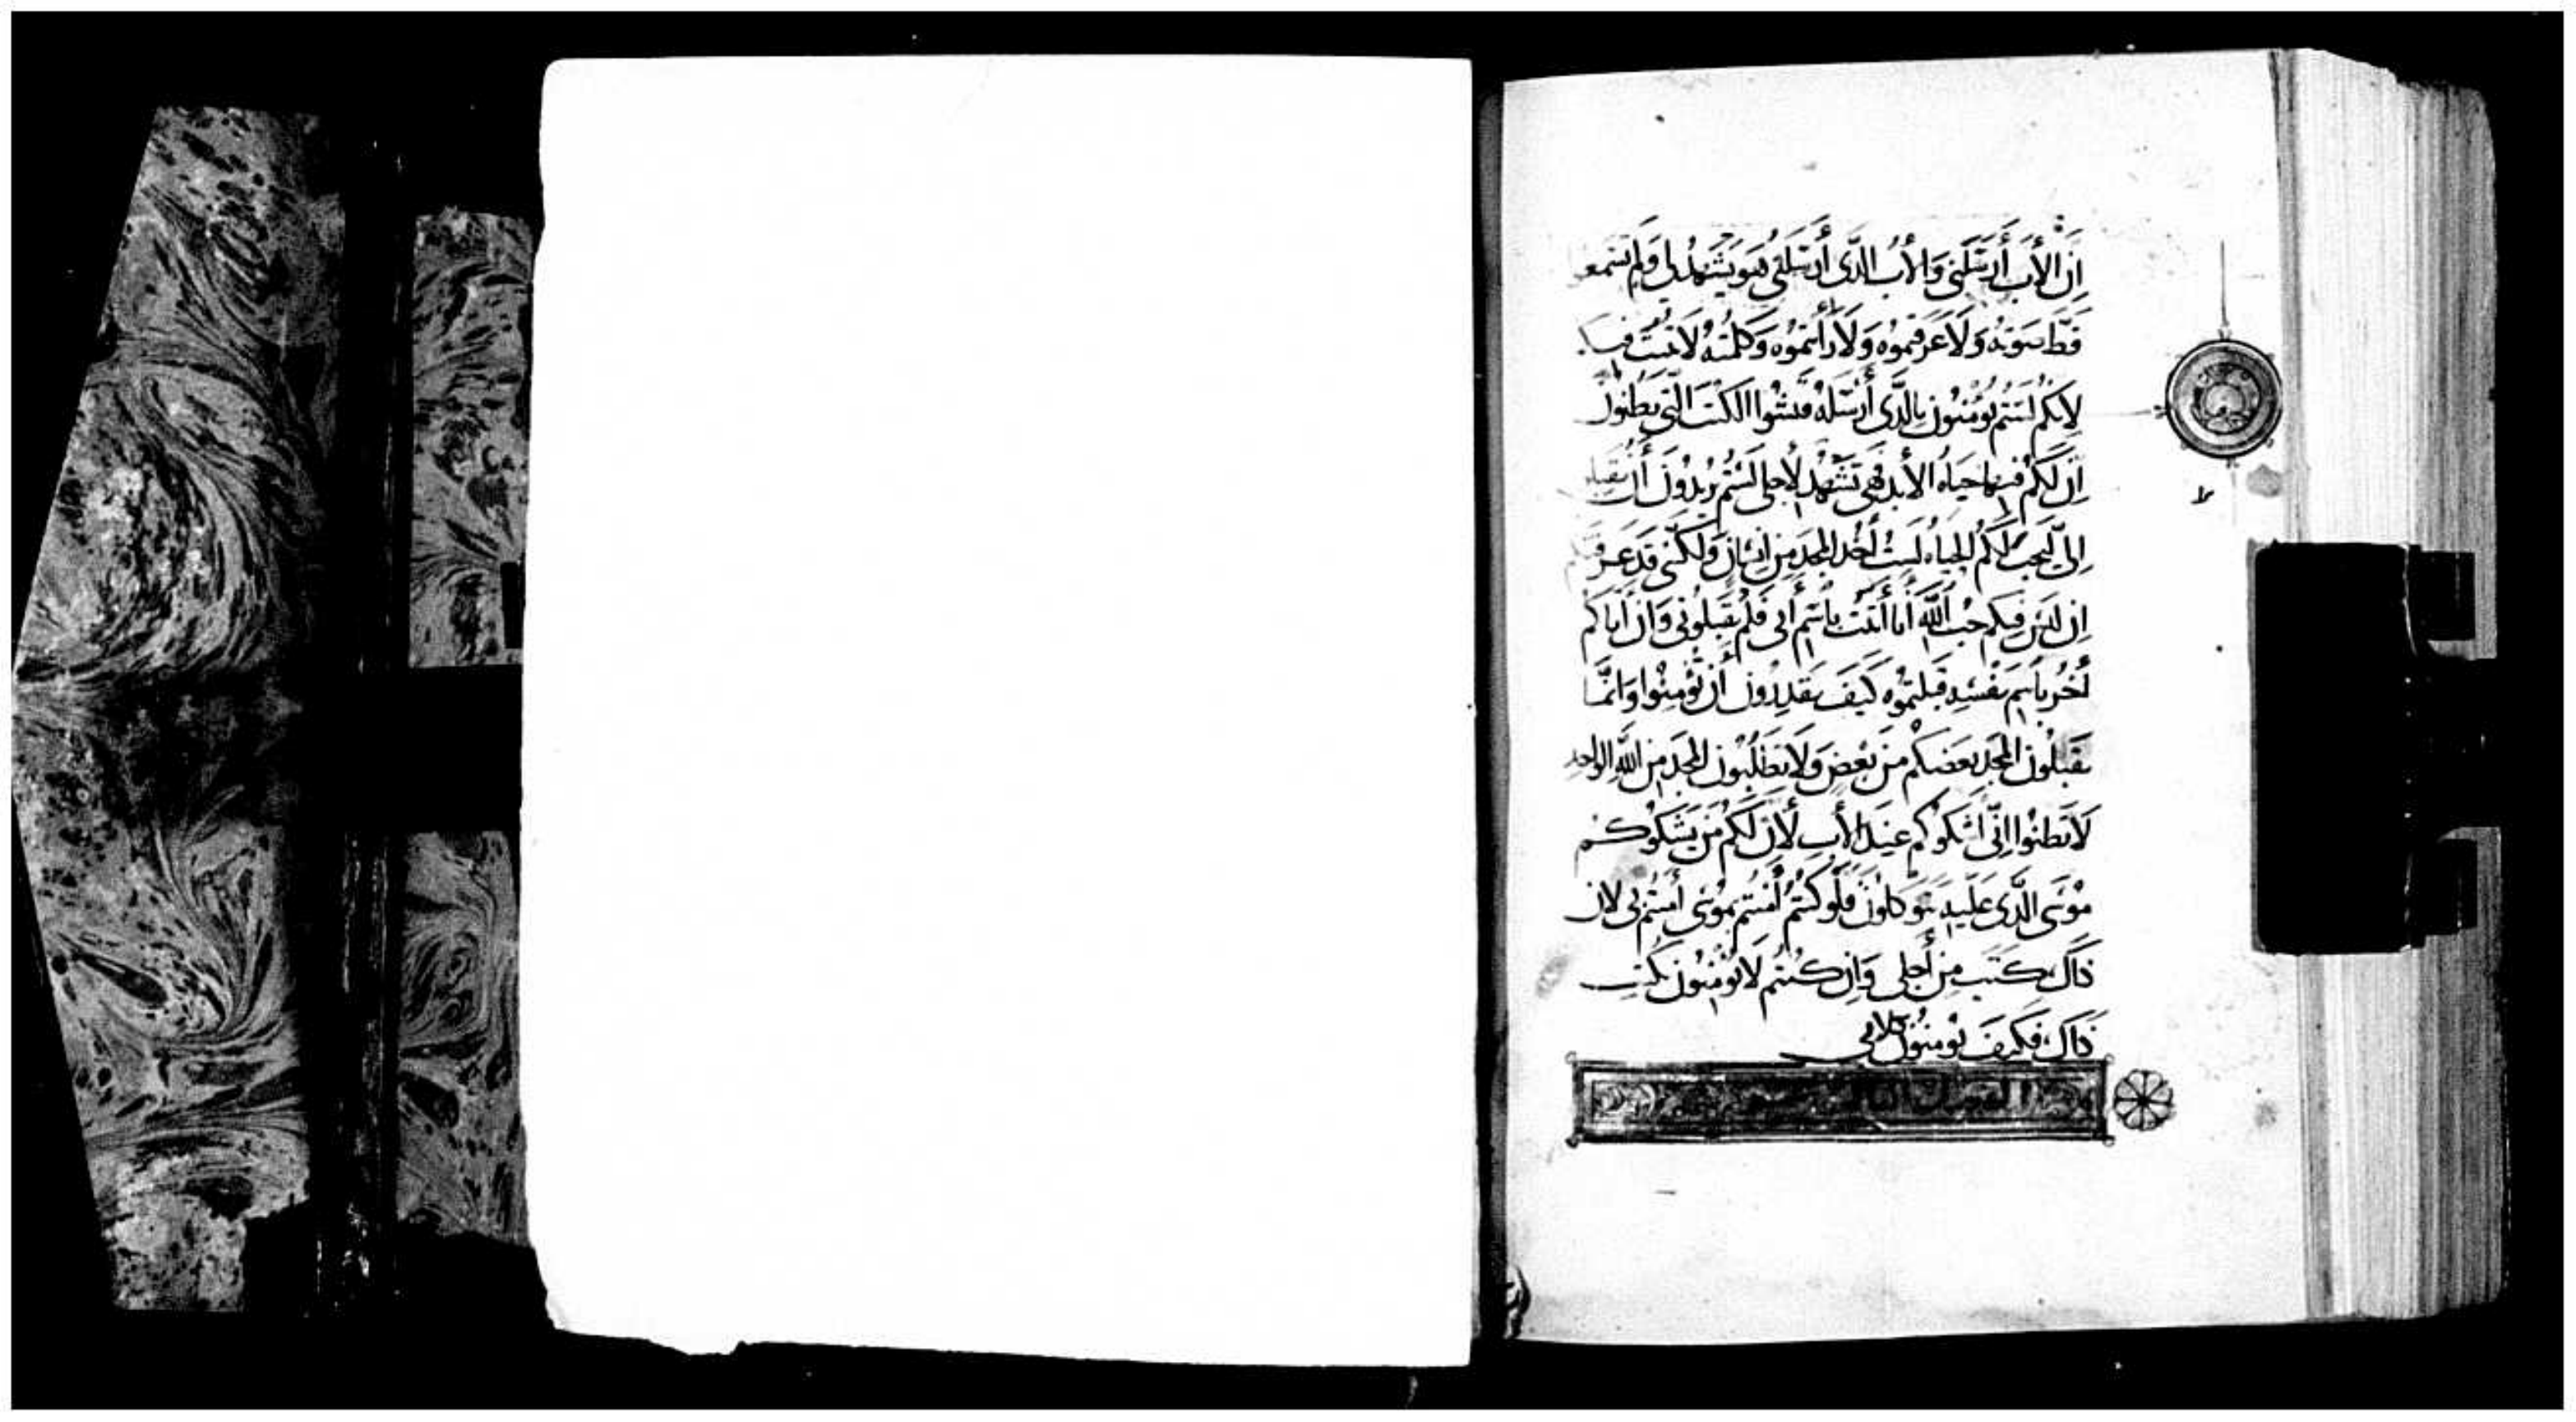 إن الأب أرسلني والأب الذي أرسلني هو يشهد لي ولم تسمعو
قط صوته ولا عرفتموه ولا رأيتموه وكلمته لا تثبت فيكم
لانكم لستم تؤمنون بالذي أرسله فتشوا الكتب التي تظنون
إن لكم فيها حياه الأبد فهي تشهد لأجلي لستم تريدون أن تقبلو
إلي ليجب لكم الحياه لست أخذ المجد من إنسان ولكني قد عرفتكم
إن ليس فيكم حب الله أنا أتيت بأسم أبي فلم تقبلوني وان أتاكم
أخر بأسم نفسه قبلتموه كيف تقدرون أن تؤمنوا وانما
تقبلون المجد بعضكم من بعض ولا تطلبون المجد من الله الواحد
لا تظنوا إني اشكوكم عند الأب لان لكم من يشكوكم
موسى الذي عليه تتوكلون فلو كنتم أمنتم بموسى أمنتم بي لان
ذاك كتب من أجلي وإن كنتم لا تؤمنون بكتب
ذاك فكيف تؤمنون بكلامي